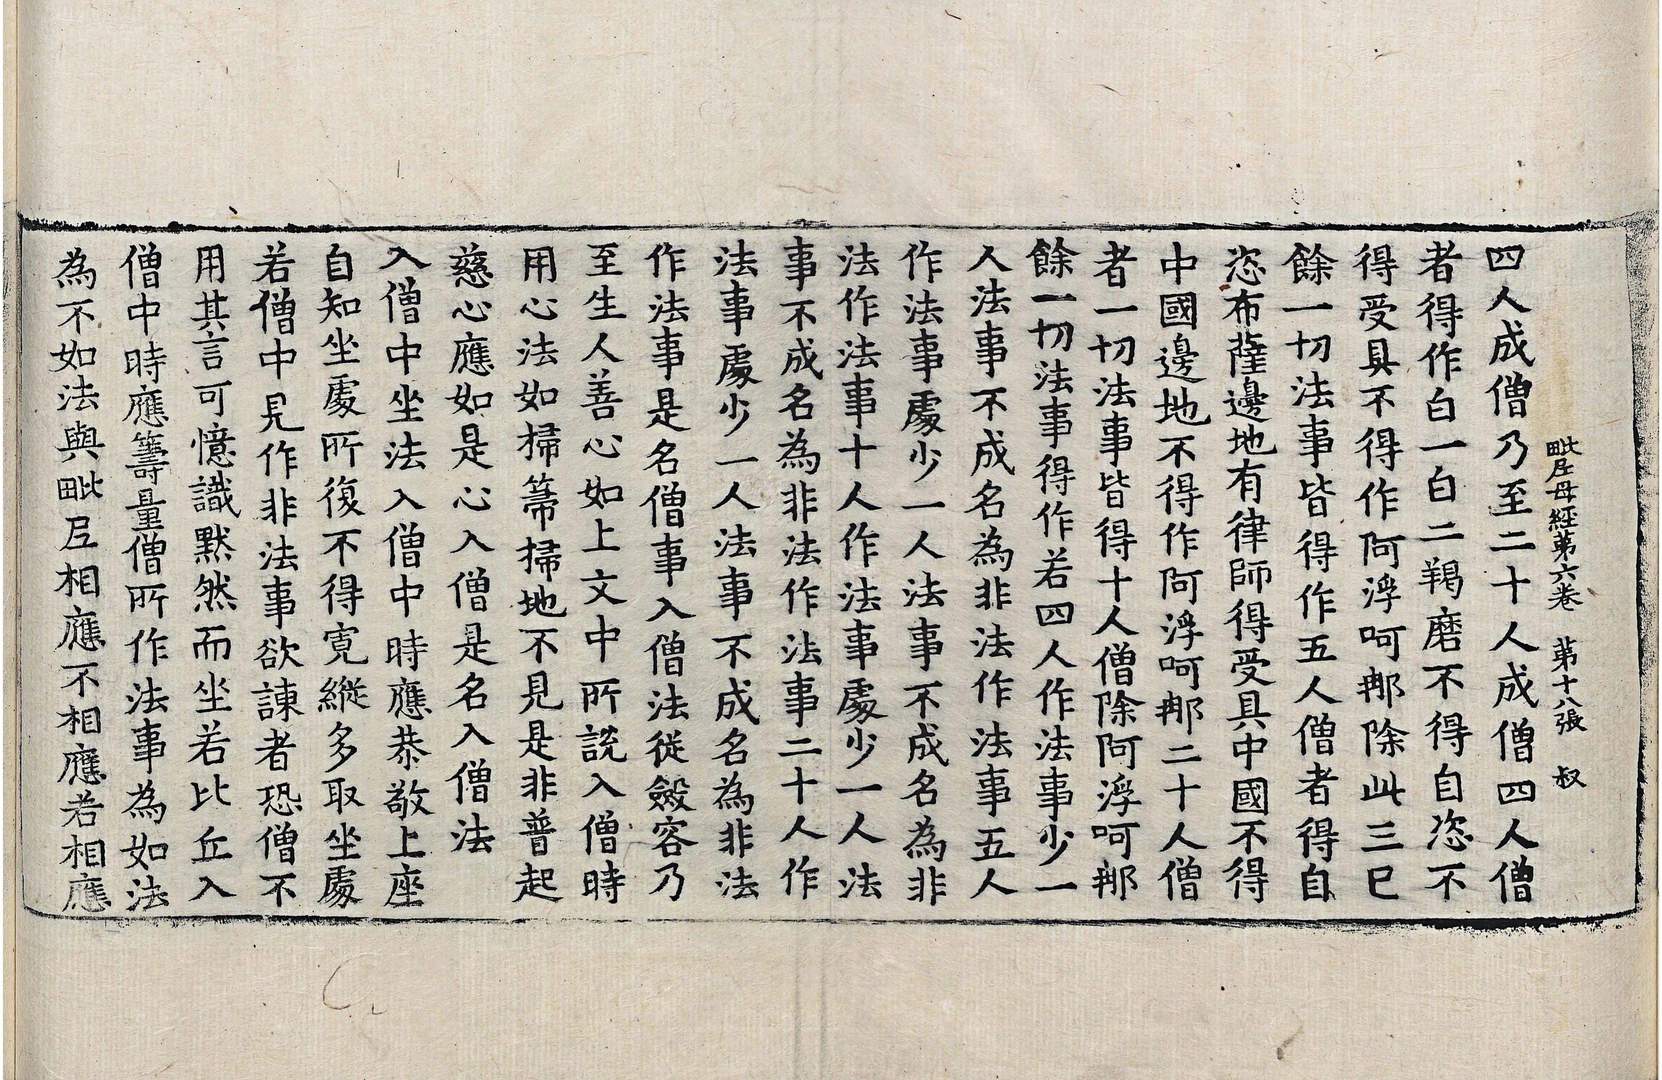 毗尼母經第六卷　第十八張　叔
四人成僧乃至二十人成僧四人僧
者得作白一白二羯磨不得自恣不
得受具不得作阿浮呵那除此三已
餘一切法事皆得作五人僧者得自
恣布薩邊地有律師得受具中國不得
中國邊地不得作阿浮呵那二十人僧
者一切法事皆得十人僧除阿浮呵那
餘一切法事得作若四人作法事少一
人法事不成名為非法作法事五人
作法事處少一人法事不成名為非
法作法事十人作法事處少一人法
事不成名為非法作法事二十人作
法事處少一人法事不成名為非法
作法事是名僧事入僧法從斂容乃
至生人善心如上文中所說入僧時
用心法如掃箒掃地不見是非普起
慈心應如是心入僧是名入僧法
入僧中坐法入僧中時應恭敬上座
自知坐處所復不得寬縱多取坐處
若僧中見作非法事欲諫者恐僧不
用其言可憶識默然而坐若比丘入
僧中時應籌量僧所作法事為如法
為不如法與毗尼相應不相應若相應